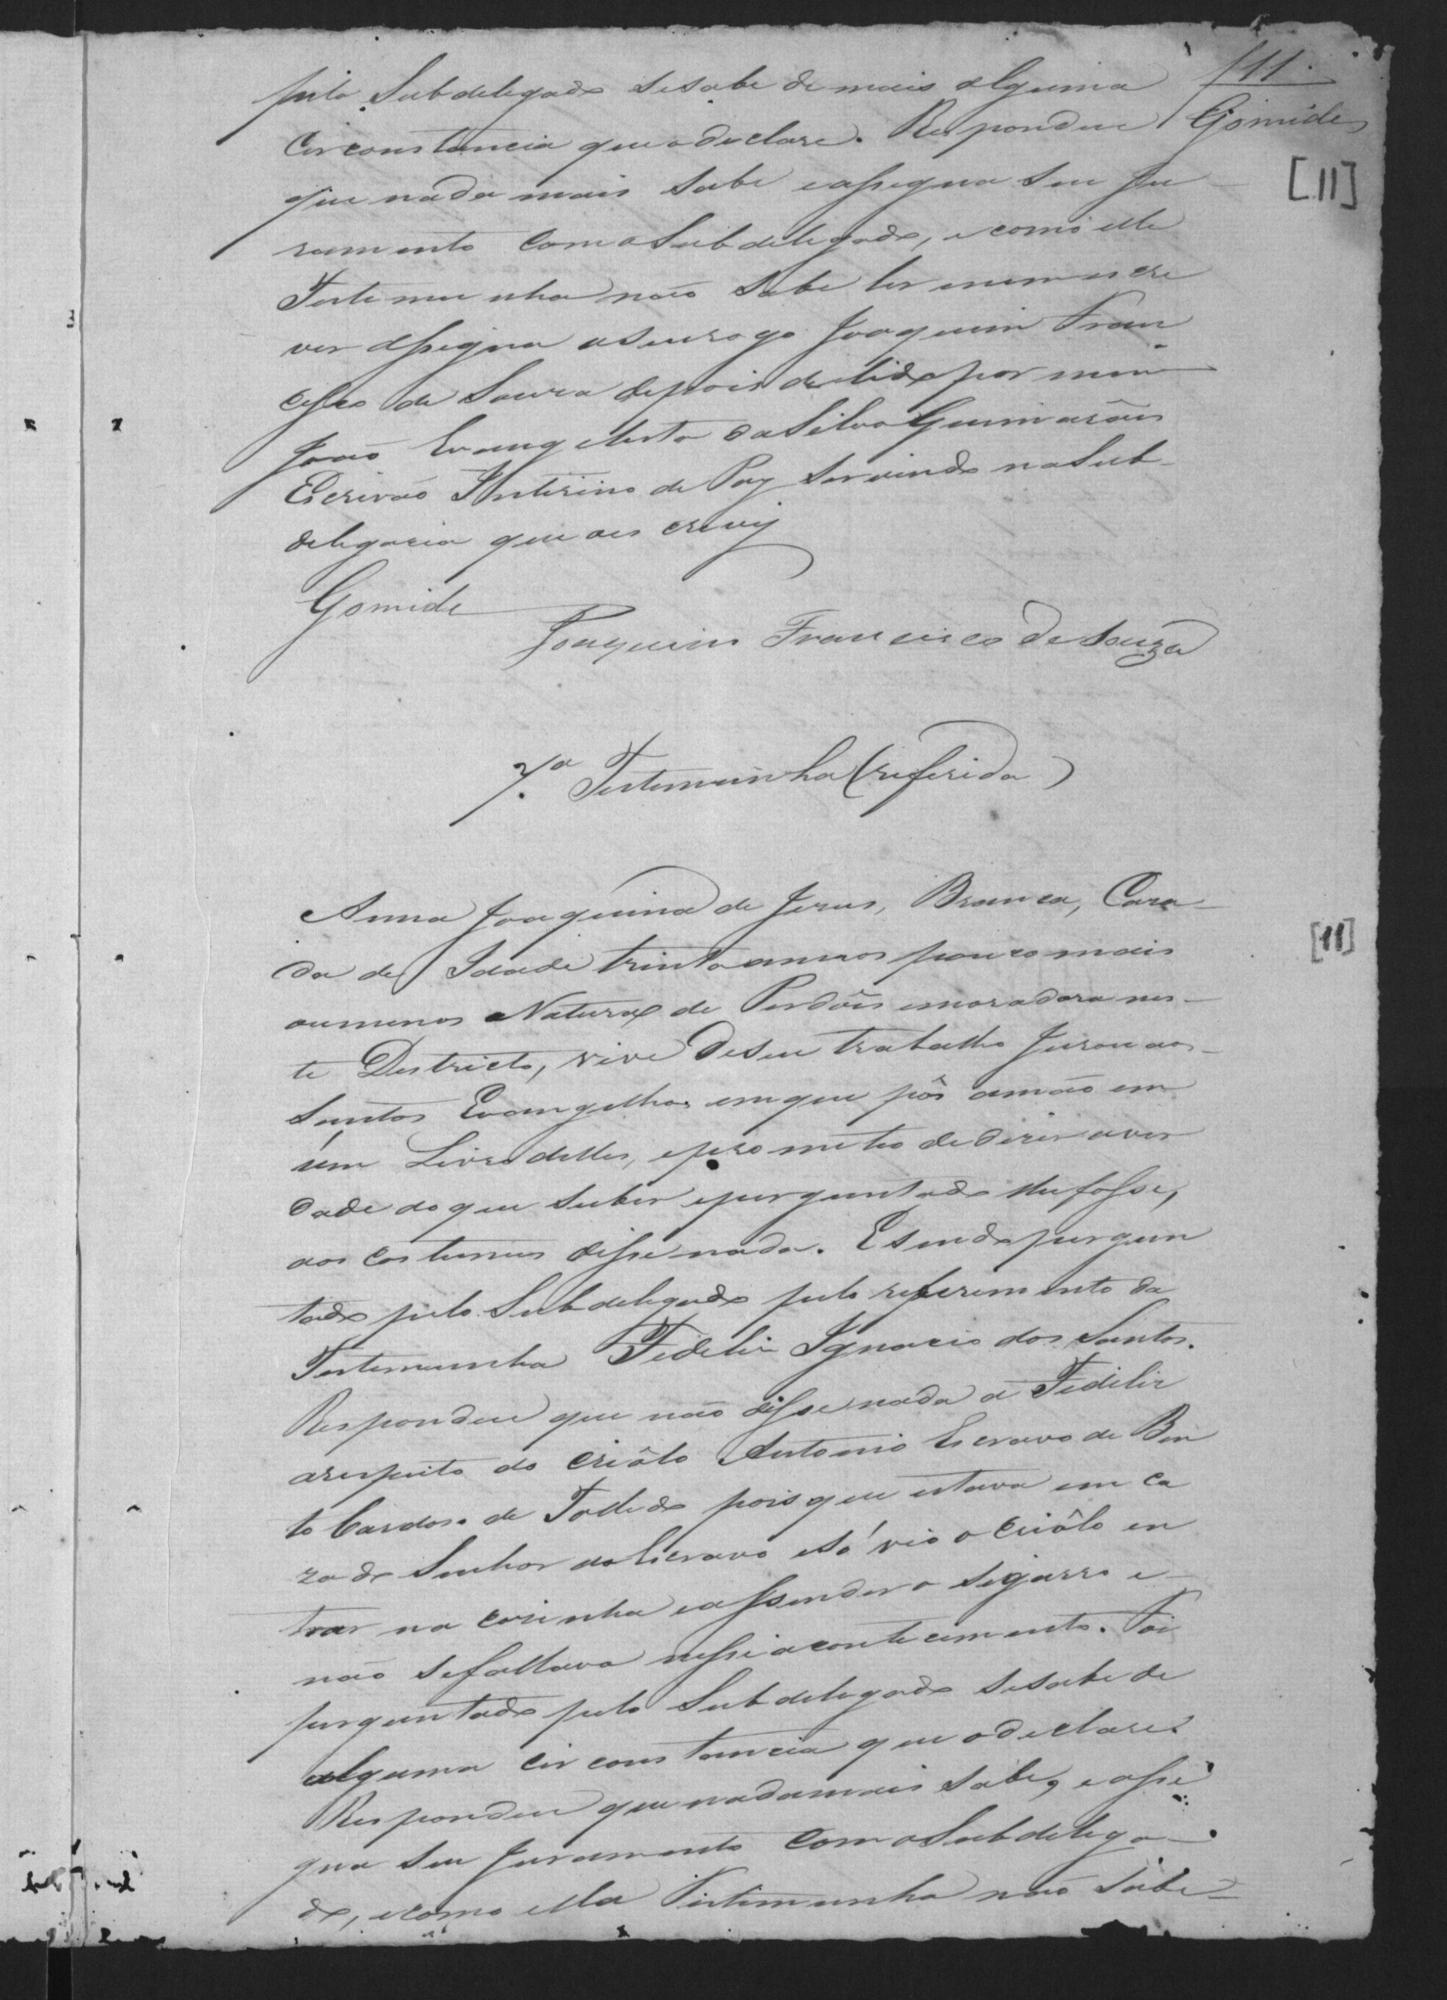 pelo Subdelegado se sabe de mais alguma
f 11.
Gomide
circonstancia que o declare. Respondeu
[11]
que nada mais sabe e assigna seu ju
ramento com o Subdelegado, e como elle
Testemunha não sabe ler e nem escre
ver assigna a seu rogo Joaquim Fran
cisco de Souza depois de lido por mim
João Evangelista da Silva Guimarães
Escrivão Interino de Paz servindo na Sub
delegacia que as crevy
Gomide
Joaquim Francisco de Souza
7.ª Testemunha (referida)
Anna Joaquina de Jesus, Branca, Caza
[11]
da de Idade trinta annos pouco mais
ou menos Natural de Perdões e moradora nes
te Districto, vive de seu trabalho Jurou aos
Santos Evangelhos em que pôs a mão em
um Livro delles, e prometeo de dizer a ver
dade do que suber e perguntado lhe fosse,
aos costumes disse nada. E sendo pergun
tado pelo Subdelegado pelo referimento da
Testemunha Fidelis Ignacio dos Santos.
Respondeu que não disse nada a Fidelis
a respeito do criôlo Antonio Escravo de Ben
to Cardoso de Tolledo pois que estava em ca
za do Senhor do Escravo e só vio o criôlo en
trar na cosinha e assender o sigarro e
não se fallava nesse acontecimento. Foi
perguntado pelo Subdelegado se sabe de
alguma circonstancia que o declare.
Respondeu que nada mais sabe, e assi
gna seu Juramento com o Subdelega
do, e como ella Testemunha não sabe